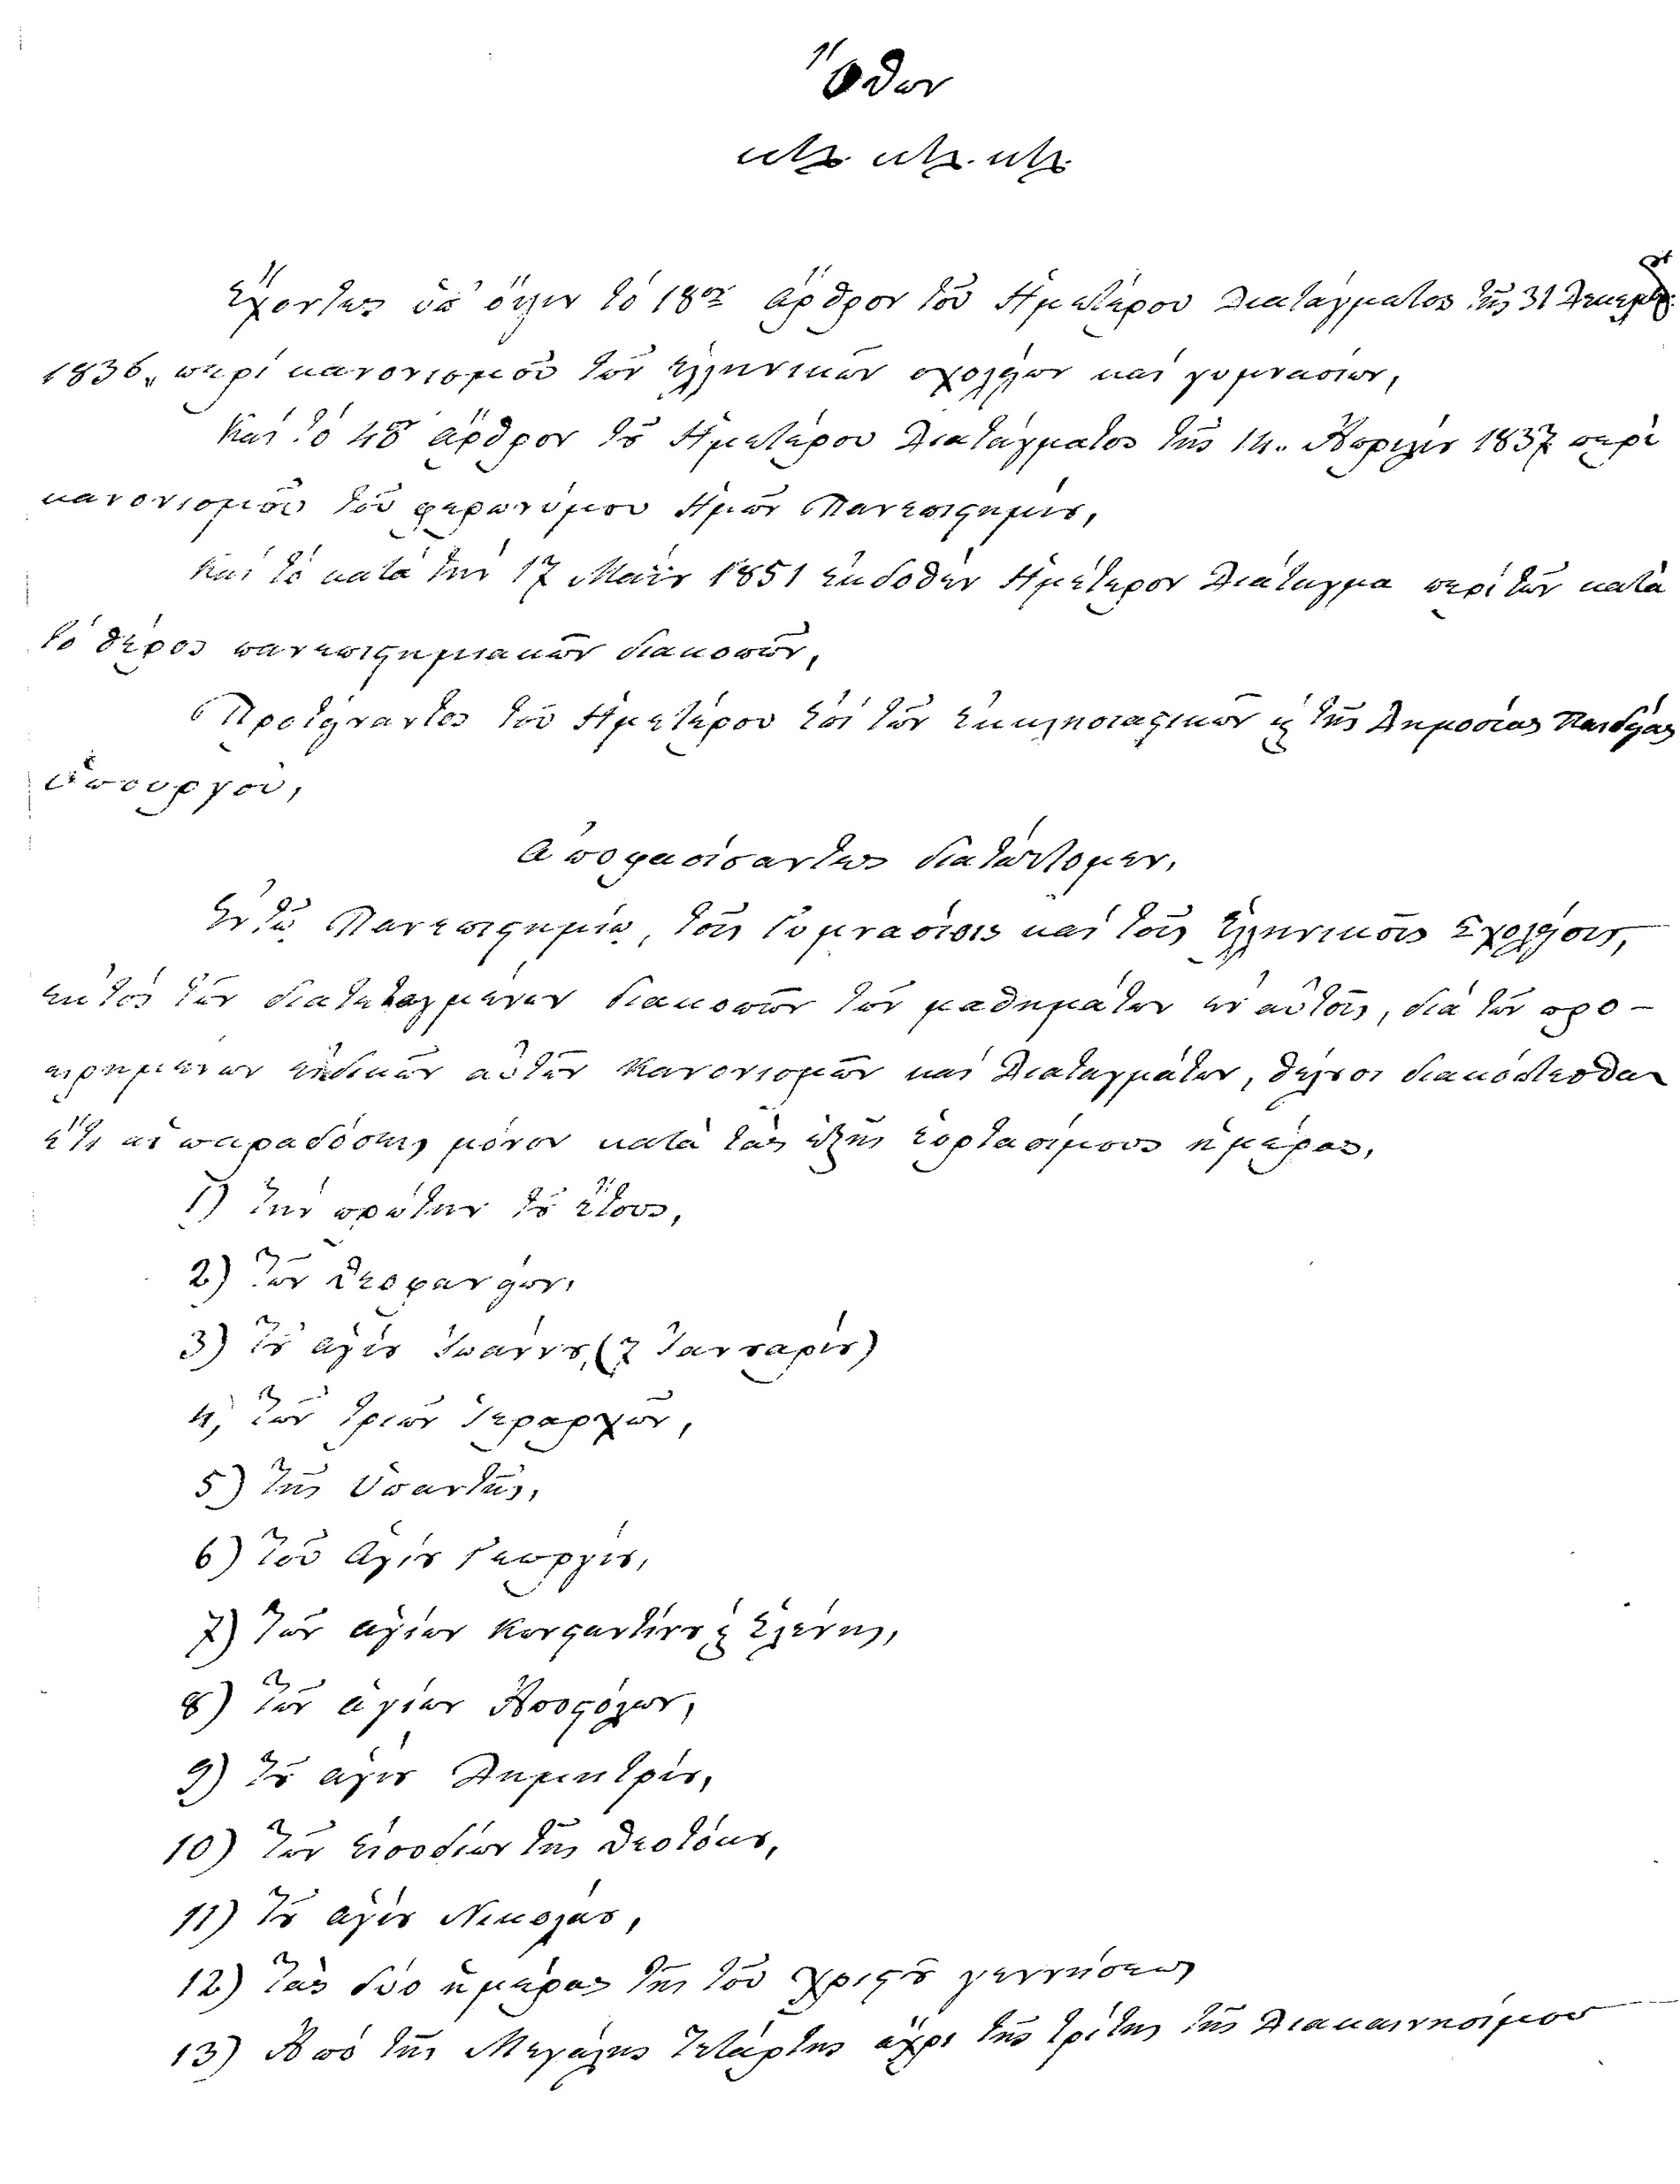 Ὄθων
κτλ. κτλ. κτλ.
Ἔχοντες ὑπ' ὄψιν τὸ 18ον ἄρθρον τοῦ Ἡμετέρου Διατάγματος τῆς 31 Δεκεμβ.
1836, περὶ κανονισμοῦ τῶν Ἑλληνικῶν σχολείων καὶ γυμνασίων,
Καὶ τὸ 48ον ἄρθρον τοῦ Ἡμετέρου Διατάγματος τῆς 14. Ἀπριλίου 1837 περὶ
κανονισμοῦ τοῦ φερωνύμου Ἡμῶν Πανεπιστημίου,
Καὶ τὸ κατὰ τὴν 17 Μαΐου 1851 ἐκδοθὲν Ἡμέτερον Διάταγμα περὶ τῶν κατὰ
τὸ θέρος πανεπιστημιακῶν διακοπῶν,
Προτείναντος τοῦ Ἡμετέρου ἐπὶ τῶν Ἐκκλησιαστικῶν καὶ τῆς Δημοσίας Παιδείας
Ὑπουργοῦ,
Ἀποφασίσαντες διατάττομεν.
Ἐν τῷ Πανεπιστημίῳ, τοῖς Γυμνασίοις καὶ τοῖς Ἑλληνικοῖς Σχολείοις,
ἐκτὸς τῶν διατεταγμένων διακοπῶν τῶν μαθημάτων ἐν αὐτοῖς, διὰ τῶν προ-
ειρημένων εἰδικῶν αὐτῶν Κανονισμῶν καὶ Διαταγμάτων, θέλουσι διακόπτεσθαι
ἔτι αἱ παραδόσεις μόνον κατὰ τὰς ἑξῆς ἑορτασίμους ἡμέρας,
1) Τὴν πρώτην τοῦ ἔτους,
2) Τῶν Θεοφανείων,
3) Τοῦ ἁγίου Ἰωάννου, (7 Ἰανουαρίου)
4) Τῶν Τριῶν Ἱεραρχῶν,
5) Τῆς Ὑπαντῆς,
6) Τοῦ Ἁγίου Γεωργίου,
7) Τῶν ἁγίων Κωνσταντίνου καὶ Ἑλένης,
8) Τῶν ἁγίων Ἀποστόλων,
9) Τοῦ ἁγίου Δημητρίου,
10) Τῶν Εἰσοδίων τῆς Θεοτόκου,
11) Τοῦ ἁγίου Νικολάου,
12) Τὰς δύο ἡμέρας τῆς τοῦ Χριστοῦ γεννήσεως
13) Ἀπὸ τῆς Μεγάλης Τετάρτης ἄχρι τῆς τρίτης τῆς Διακαινησίμου